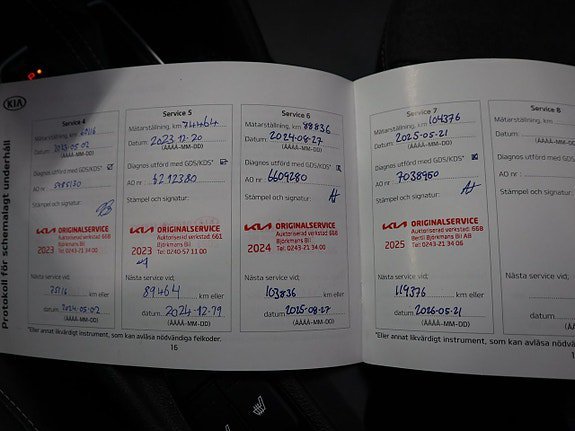 KIA
Protokoll för schemalagt underhåll
Service 4
Mätarställning, km
Datum: 2023-05-02
(ÅÅÅÅ-MM-DD)
Diagnos utförd med GDS/KDS*
AO nr :
Stämpel och signatur:
KIA ORIGINALSERVICE
Auktoriserad verkstad: 668
Björkmans Bil
2023 Tel: 0243-21 34 00
Nästa service vid:
75116 km eller
datum 2024-05-02
(ÅÅÅÅ-MM-DD)
Service 5
Mätarställning, km 74464
Datum: 2023-12-20
(ÅÅÅÅ-MM-DD)
Diagnos utförd med GDS/KDS*
AO nr : 6212380
Stämpel och signatur:
KIA ORIGINALSERVICE
Auktoriserad verkstad: 661
Björkmans Bil
2023 Tel: 0240 57 11 00
Nästa service vid:
89464 km eller
datum 2024-12-19
(ÅÅÅÅ-MM-DD)
Service 6
Mätarställning, km 88836
Datum: 2024-08-27
(ÅÅÅÅ-MM-DD)
Diagnos utförd med GDS/KDS*
AO nr : 6604280
Stämpel och signatur:
KIA ORIGINALSERVICE
Auktoriserad verkstad: 668
Björkmans Bil
2024 Tel: 0243-21 34 00
Nästa service vid:
103836 km eller
datum 2025-08-27
(ÅÅÅÅ-MM-DD)
*Eller annat likvärdigt instrument, som kan avläsa nödvändiga felkoder.
16
Service 7
Mätarställning, km 104376
Datum: 2025-05-21
(ÅÅÅÅ-MM-DD)
Diagnos utförd med GDS/KDS*
AO nr : 7038950
Stämpel och signatur:
KIA ORIGINALSERVICE
Auktoriserad verkstad: 668
Bertil Björkmans Bil AB
2025 Tel: 0243-21 34 06
Nästa service vid:
119376 km eller
datum 2026-05-21
(ÅÅÅÅ-MM-DD)
Service 8
Mätarställning, km
Datum:
(ÅÅÅÅ-MM-
Diagnos utförd med
AO nr :
Stämpel och signatur
Nästa service vid:
datum
(ÅÅÅÅ-M
*Eller annat likvärdigt instrument, som kan avläsa